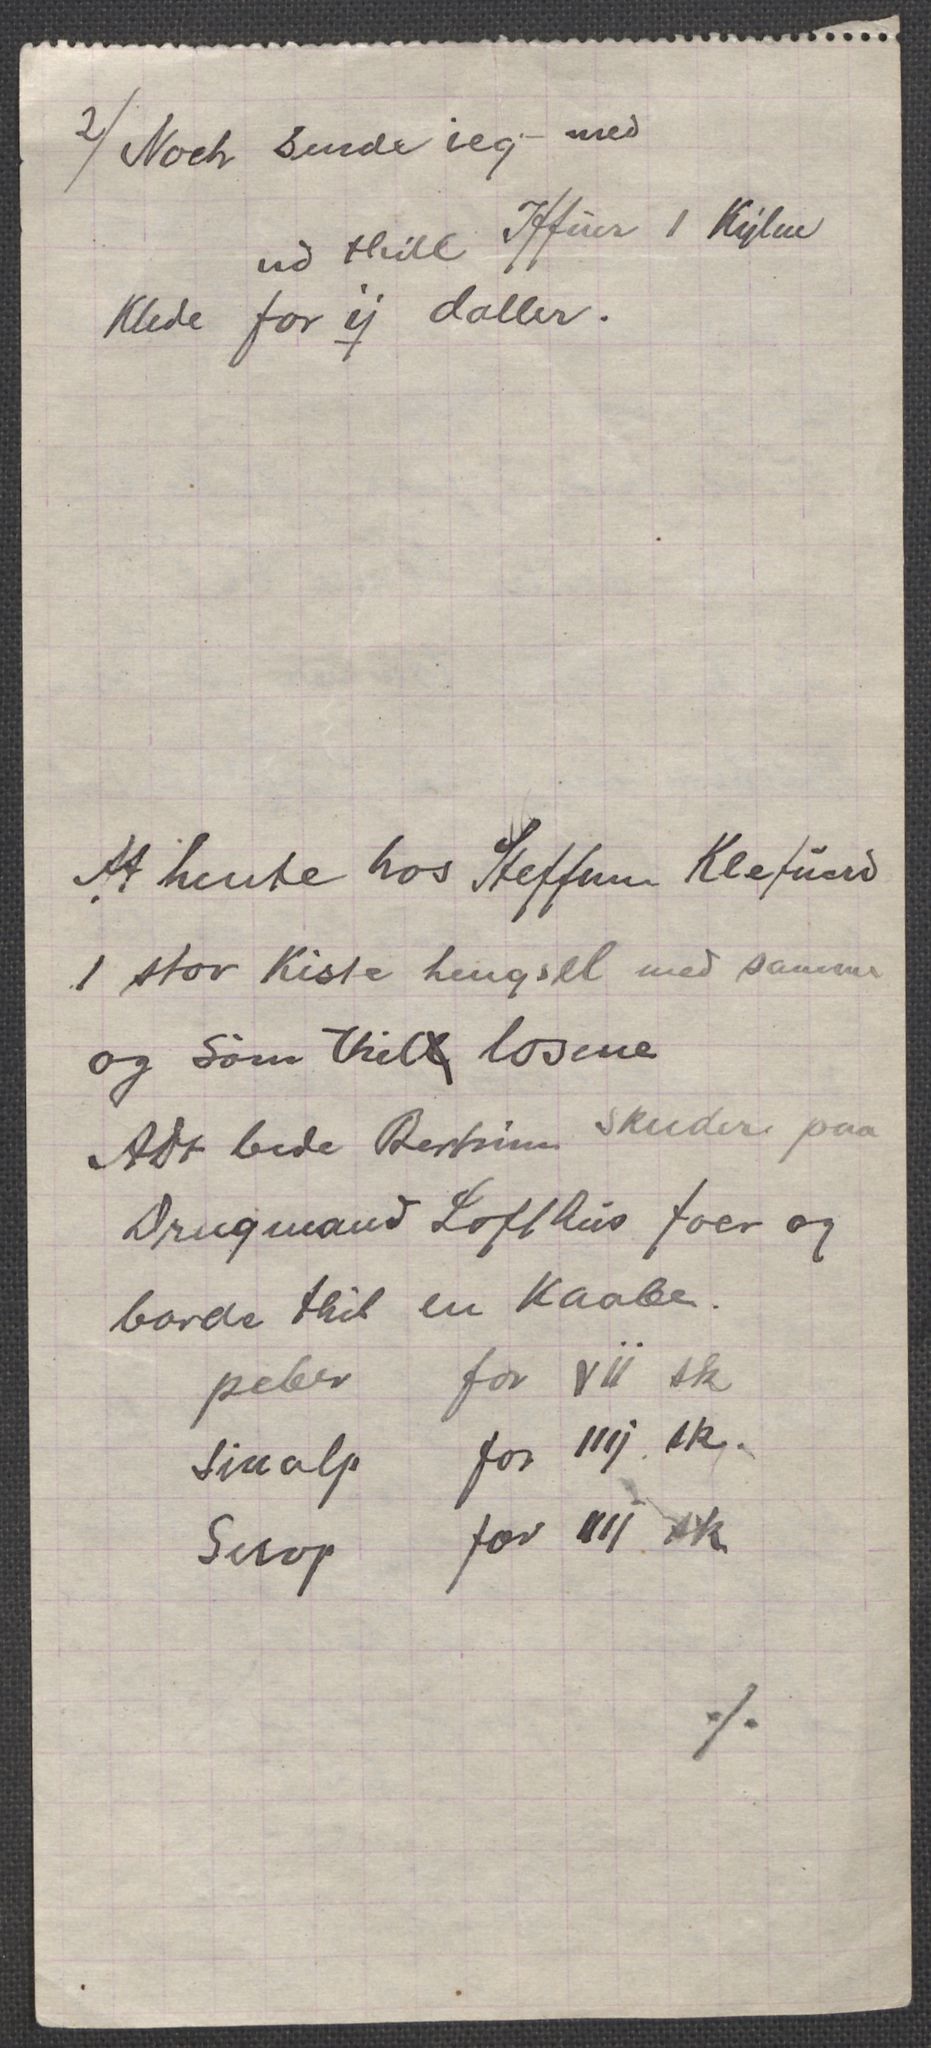 2/ Noch sende ieg med
ud thill Iffuer 1 Kylne
Klede for ij daller.
At hente hos Steffuen Klefuerd
1 stor Kiste hengsel med samme
og Söm thill losene
Adt bede Bertrim skuder paa
Drugmand Lofthus foer og
borde thil en Kaabe.
peber for vii sk
Sinalp for iiij sk.
Serop for iiij sk
./.